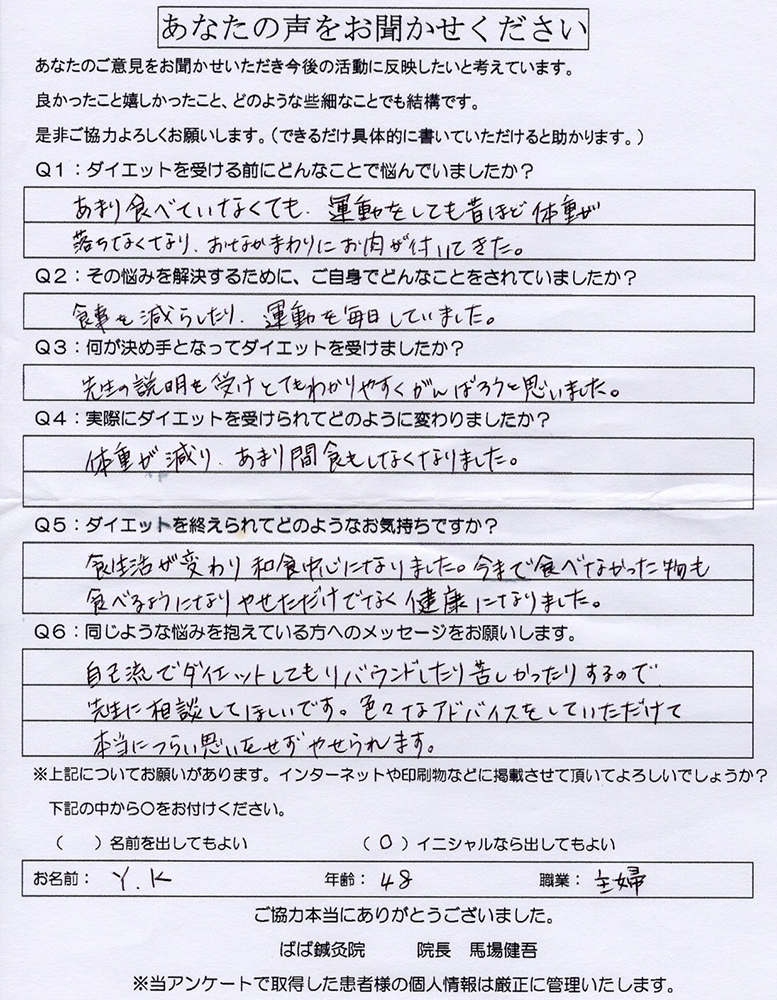 あなたの声をお聞かせください
あなたのご意見をお聞かせいただき今後の活動に反映したいと考えています。
良かったこと嬉しかったこと、どのような些細なことでも結構です。
是非ご協力よろしくお願いします。（できるだけ具体的に書いていただけると助かります。）
Q1：ダイエットを受ける前にどんなことで悩んでいましたか？
あまり食べていなくても、運動をしても昔ほど体重が
落ちなくなり、おなかまわりにお肉が付いてきた。
Q2：その悩みを解決するために、ご自身でどんなことをされていましたか？
食事を減らしたり、運動を毎日していました。
Q3：何が決め手となってダイエットを受けましたか？
先生の説明を受けとてもわかりやすくがんばろうと思いました。
Q4：実際にダイエットを受けられてどのように変わりましたか？
体重が減り、あまり間食もしなくなりました。
Q5：ダイエットを終えられてどのようなお気持ちですか？
食生活が変わり和食中心になりました。今まで食べなかった物も
食べるようになりやせただけでなく健康になりました。
Q6：同じような悩みを抱えている方へのメッセージをお願いします。
自己流でダイエットしてもリバウンドしたり苦しかったりするので、
先生に相談してほしいです。色々なアドバイスをしていただけて
本当につらい思いをせずやせられます。
※上記についてお願いがあります。インターネットや印刷物などに掲載させて頂いてよろしいでしょうか？
下記の中から○をお付けください。
（　）名前を出してもよい　（○）イニシャルなら出してもよい
お名前： Y.K　年齢： 48　職業： 主婦
ご協力本当にありがとうございました。
ばば鍼灸院　院長　馬場健吾
※当アンケートで取得した患者様の個人情報は厳正に管理いたします。